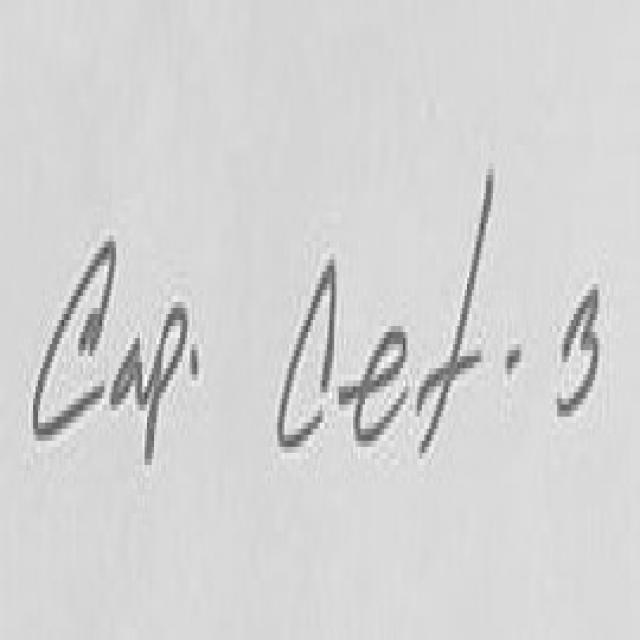 Cap. Cet. 3